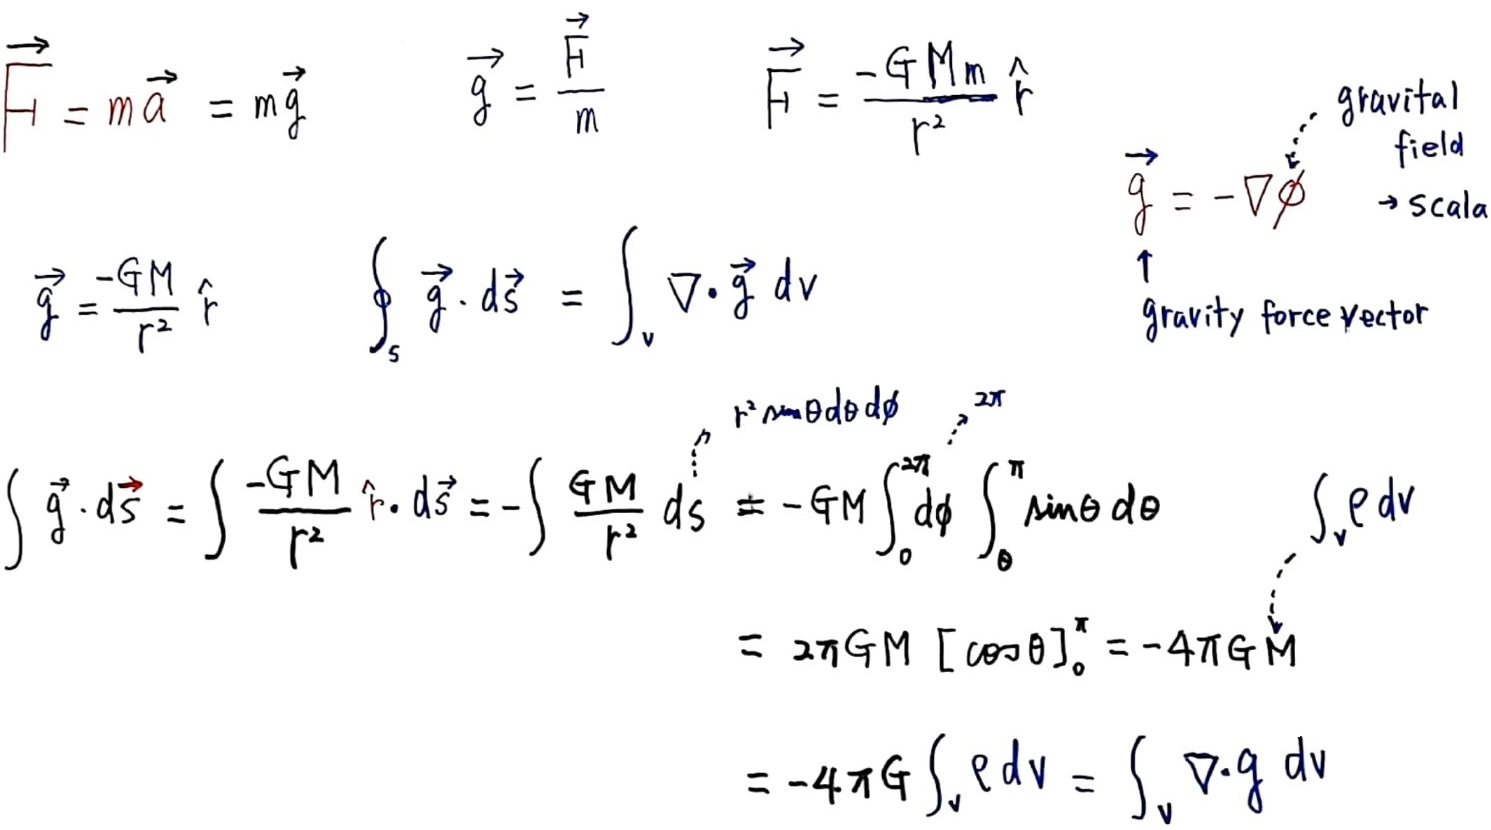 $\vec{F} = m\vec{a} = m\vec{g}$
$\vec{g} = \frac{\vec{F}}{m}$
$\vec{F} = \frac{-GMm}{r^2} \hat{r}$
gravital
field
→ scala
$\vec{g} = -\nabla\phi$
↑
gravity force vector
$\vec{g} = \frac{-GM}{r^2} \hat{r}$
$\oint_s \vec{g} \cdot d\vec{s} = \int_v \nabla \cdot \vec{g} \, dv$
$r^2 \sin\theta d\theta d\phi$
$2\pi$
$\int \vec{g} \cdot d\vec{s} = \int \frac{-GM}{r^2} \hat{r} \cdot d\vec{s} = -\int \frac{GM}{r^2} ds = -GM \int_0^{2\pi} d\phi \int_0^{\pi} \sin\theta \, d\theta$
$\int_v \rho \, dv$
$= 2\pi GM [\cos\theta]_0^{\pi} = -4\pi GM$
$= -4\pi G \int_v \rho \, dv = \int_v \nabla \cdot g \, dv$